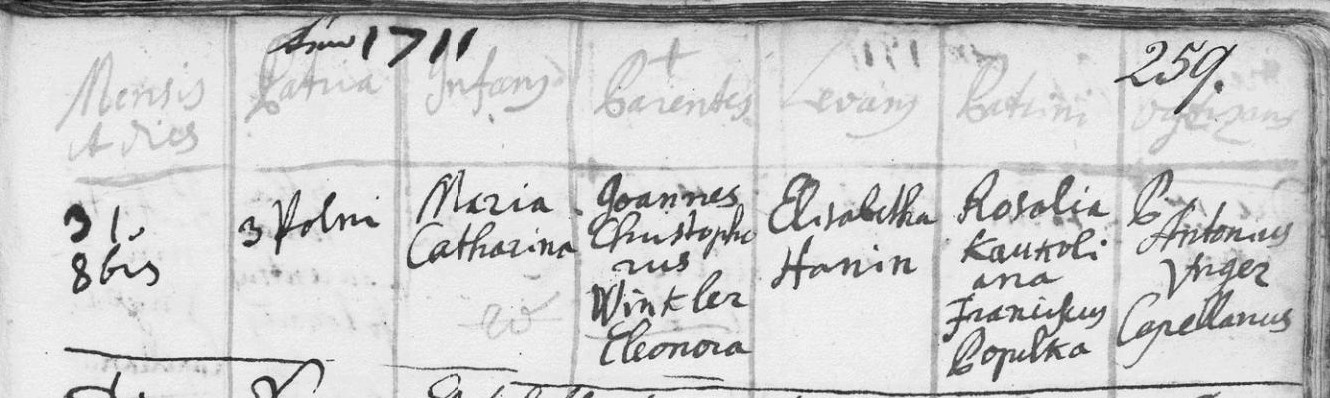 Anno 1711
259.
Mensis
et dies
Patria
Infans
Parentes
Levans
Patrini
31.
8bris
3 Polni
Maria
Catharina
Joannes
Christopho
rus
Winkler
Eleonora
Elisabetha
Hanin
Rosalia
ana
Franciskus
Populka
P
Antonius
Unger
Capellanus